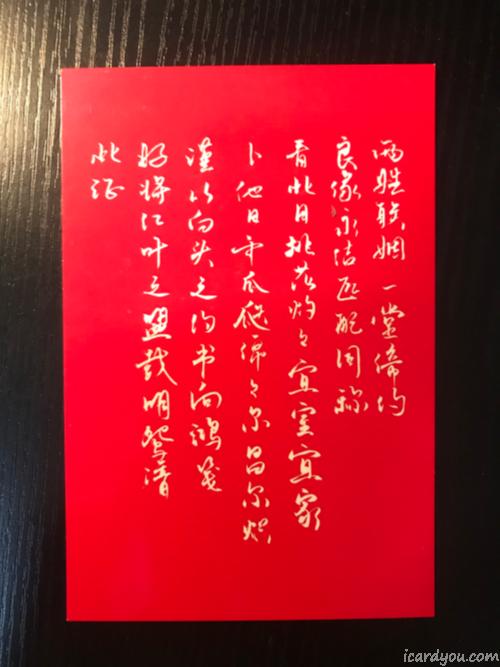 两姓联姻一堂缔约
良缘永结匹配同称
看此日桃花灼々宜室宜家
卜他日年瓜瓞绵々尔昌尔炽
谨以白头之约书向鸿笺
好将红叶之盟载明鸳谱
此证
icardyou.com